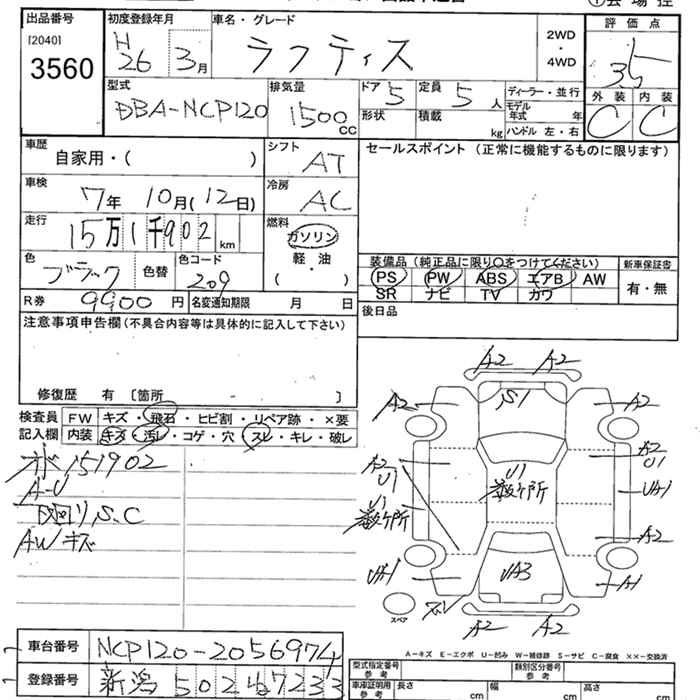 出品番号
[2040]
3560
初度登録年月
H 26 3月
車名・グレード
ラフティス
2WD
・
4WD
評価点
3.5
型式
DBA-NCP120
排気量
1500cc
ドア 5
定員 5 人
形状
積載 kg
ディーラー・並行
モデル年式 年
ハンドル 左・右
外装 内装
C C
車歴
自家用・( )
シフト
AT
セールスポイント (正常に機能するものに限ります)
車検
7年 10月(12日)
冷房
AC
走行
15万1千902km
燃料
ガソリン
軽・油
( )
色
ブラック
色替
色コード
209
装備品 (純正品に限り○をつけてください)
新車保証書
PS PW ABS エアB AW
SR ナビ TV カワ
有・無
R券 9900 円
名変通知期限 月 日
後日品
注意事項申告欄(不具合内容等は具体的に記入して下さい)
修復歴 有 〔箇所 〕
検査員
記入欄
FW キズ・飛石・ヒビ割・リペア跡・×要
内装 キズ・汚レ・コゲ・穴・スレ・キレ・破レ
151902
A-U
下廻り S.C
AWキズ
A2 A2
A2 S1 A2
A2 U1
A2 U1
U1 数ケ所
U1 数ケ所
UA1
A2
UA1
UA3
A1
スペア
A2 A2
車台番号 NCP120-2056974
登録番号 新潟 502
A-キズ E-エクボ U-凹み W-補修跡 S-サビ C-腐食 ××-交換済
型式指定番号 参考
類別区分番号 参考
車庫証明用 参考
長さ cm
幅 cm
高さ cm